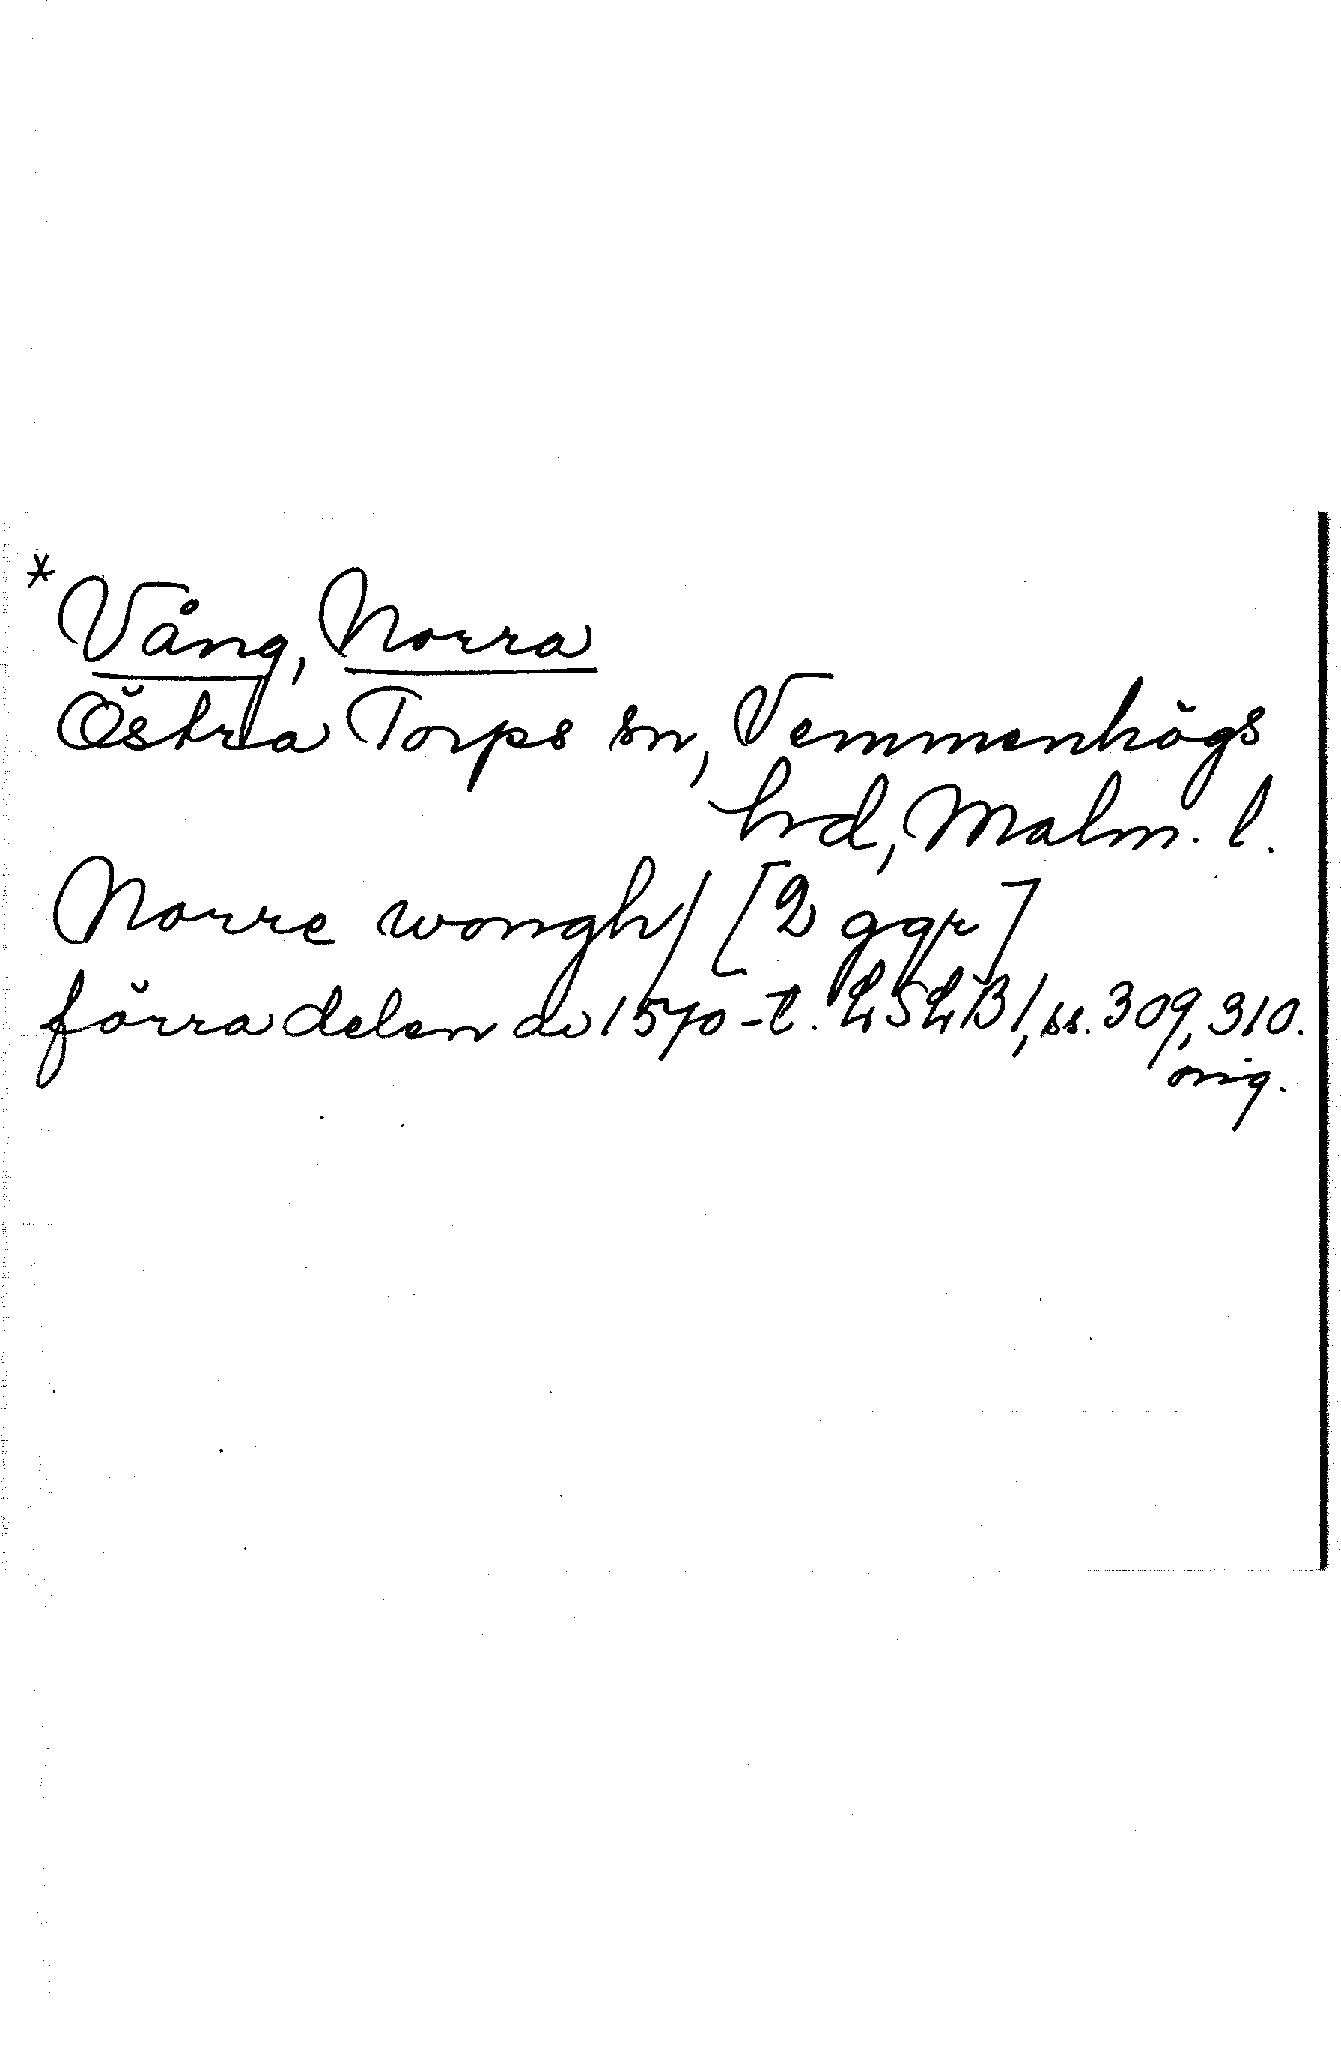 * Vång, Norra
Östra Torps sn, Vemmenhögs
hd, Malm. l.
Norre wongh/ [2 ggr]
förra delen av 1570-t. LSLB 1, ss. 309, 310.
orig.